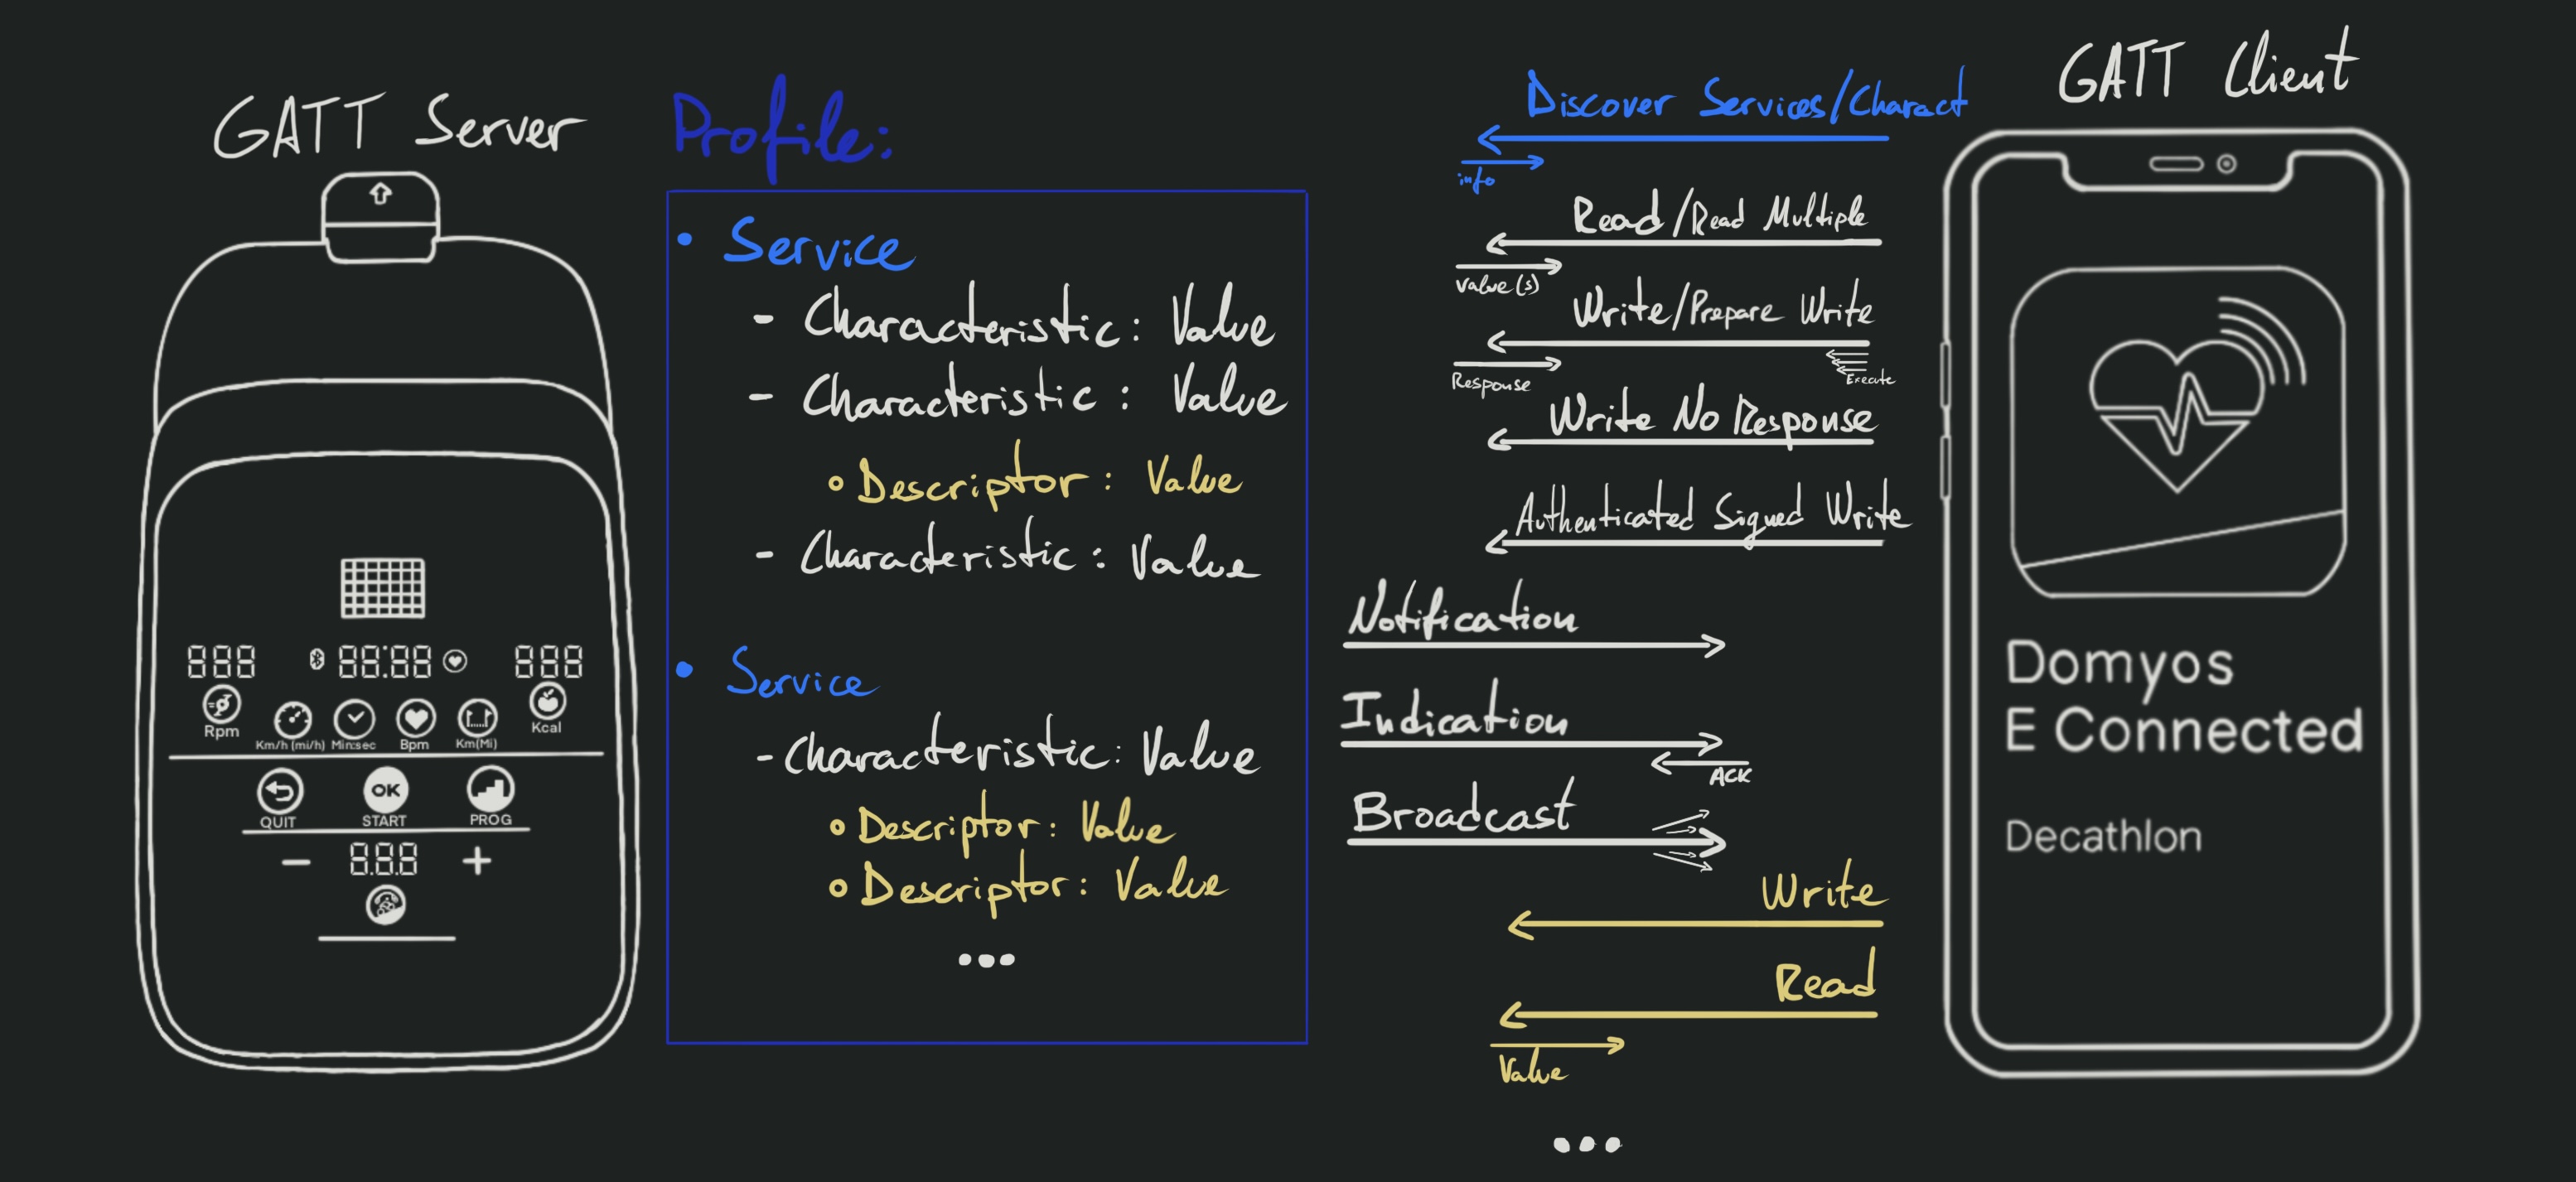 GATT Server
888
88:88
888
Rpm
Km/h (mi/h)
Min:sec
Bpm
Km(Mi)
Kcal
QUIT
OK
START
PROG
- 8.8.8 +
Profile:
• Service
- Characteristic: Value
- Characteristic: Value
o Descriptor: Value
- Characteristic: Value
• Service
- Characteristic: Value
o Descriptor: Value
o Descriptor: Value
...
Discover Services/Charact
info
Read/Read Multiple
Value(s)
Write/Prepare Write
Response
Execute
Write No Response
Authenticated Signed Write
Notification
Indication
ACK
Broadcast
Write
Read
Value
...
GATT Client
Domyos
E Connected
Decathlon